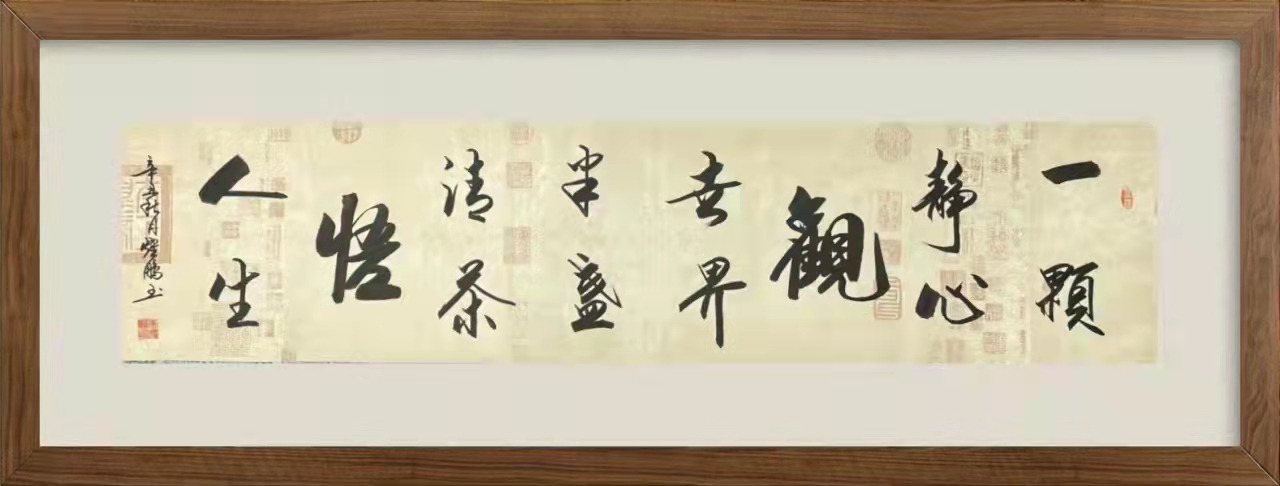 一顆
靜心
觀
世界
半盞
清茶
悟
人生
辛丑秋月耀鵬书